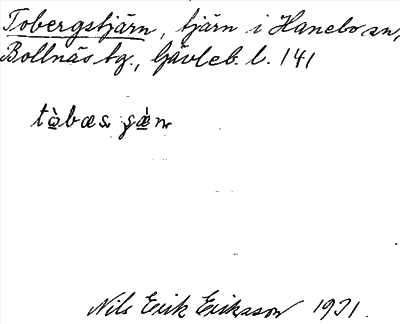 Tobergstjärn, tjärn i Hanebo sn,
Bollnäs tg., Gävleb. l. 141
tɷ̀bæs ɟæ̀n
Nils Erik Eriksson 1931.